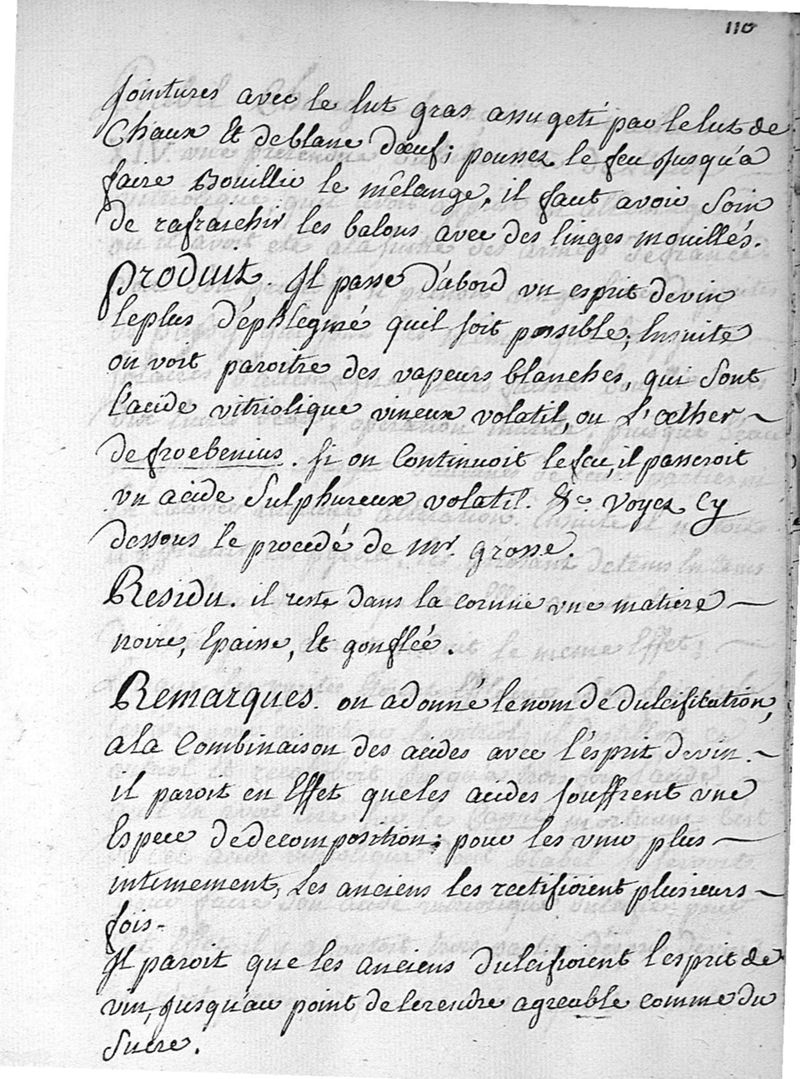 110
Jointures avec le lut gras assugeti par le lut de
Chaux Et de blanc d'œuf; poussez le feu Jusqu'a
faire Bouillir le mêlange, il faut avoir Soin
de rafraichir les balons avec des linges mouillés.
Produit. Il passe d'abord vn esprit de vin
le plus déphlegmé quil soit possible, Ensuite
on voit paroitre des vapeurs blanches, qui Sont
l'acide vitriolique vineux volatil, ou L'æther
de froebenius. Si on Continuoit le feu, il passeroit
vn acide Sulphureux volatil. &c. voyez Cy
dessous le procedé de mr. grosse.
Residu. il reste dans la cornüe vne matiere
noire, Epaisse, Et gonflée.
Remarques. on a donné le nom de dulcification,
a la Combinaison des acides avec l'esprit de vin.
il paroit en Effet que les acides souffrent vne
Espece de decomposition; pour les vnir plus
intimement, les anciens les rectifioient plusieurs
fois.
Il paroit que les anciens dulcifioient l'esprit de
vin, Jusqu'au point de le rendre agreable comme du
Sucre.